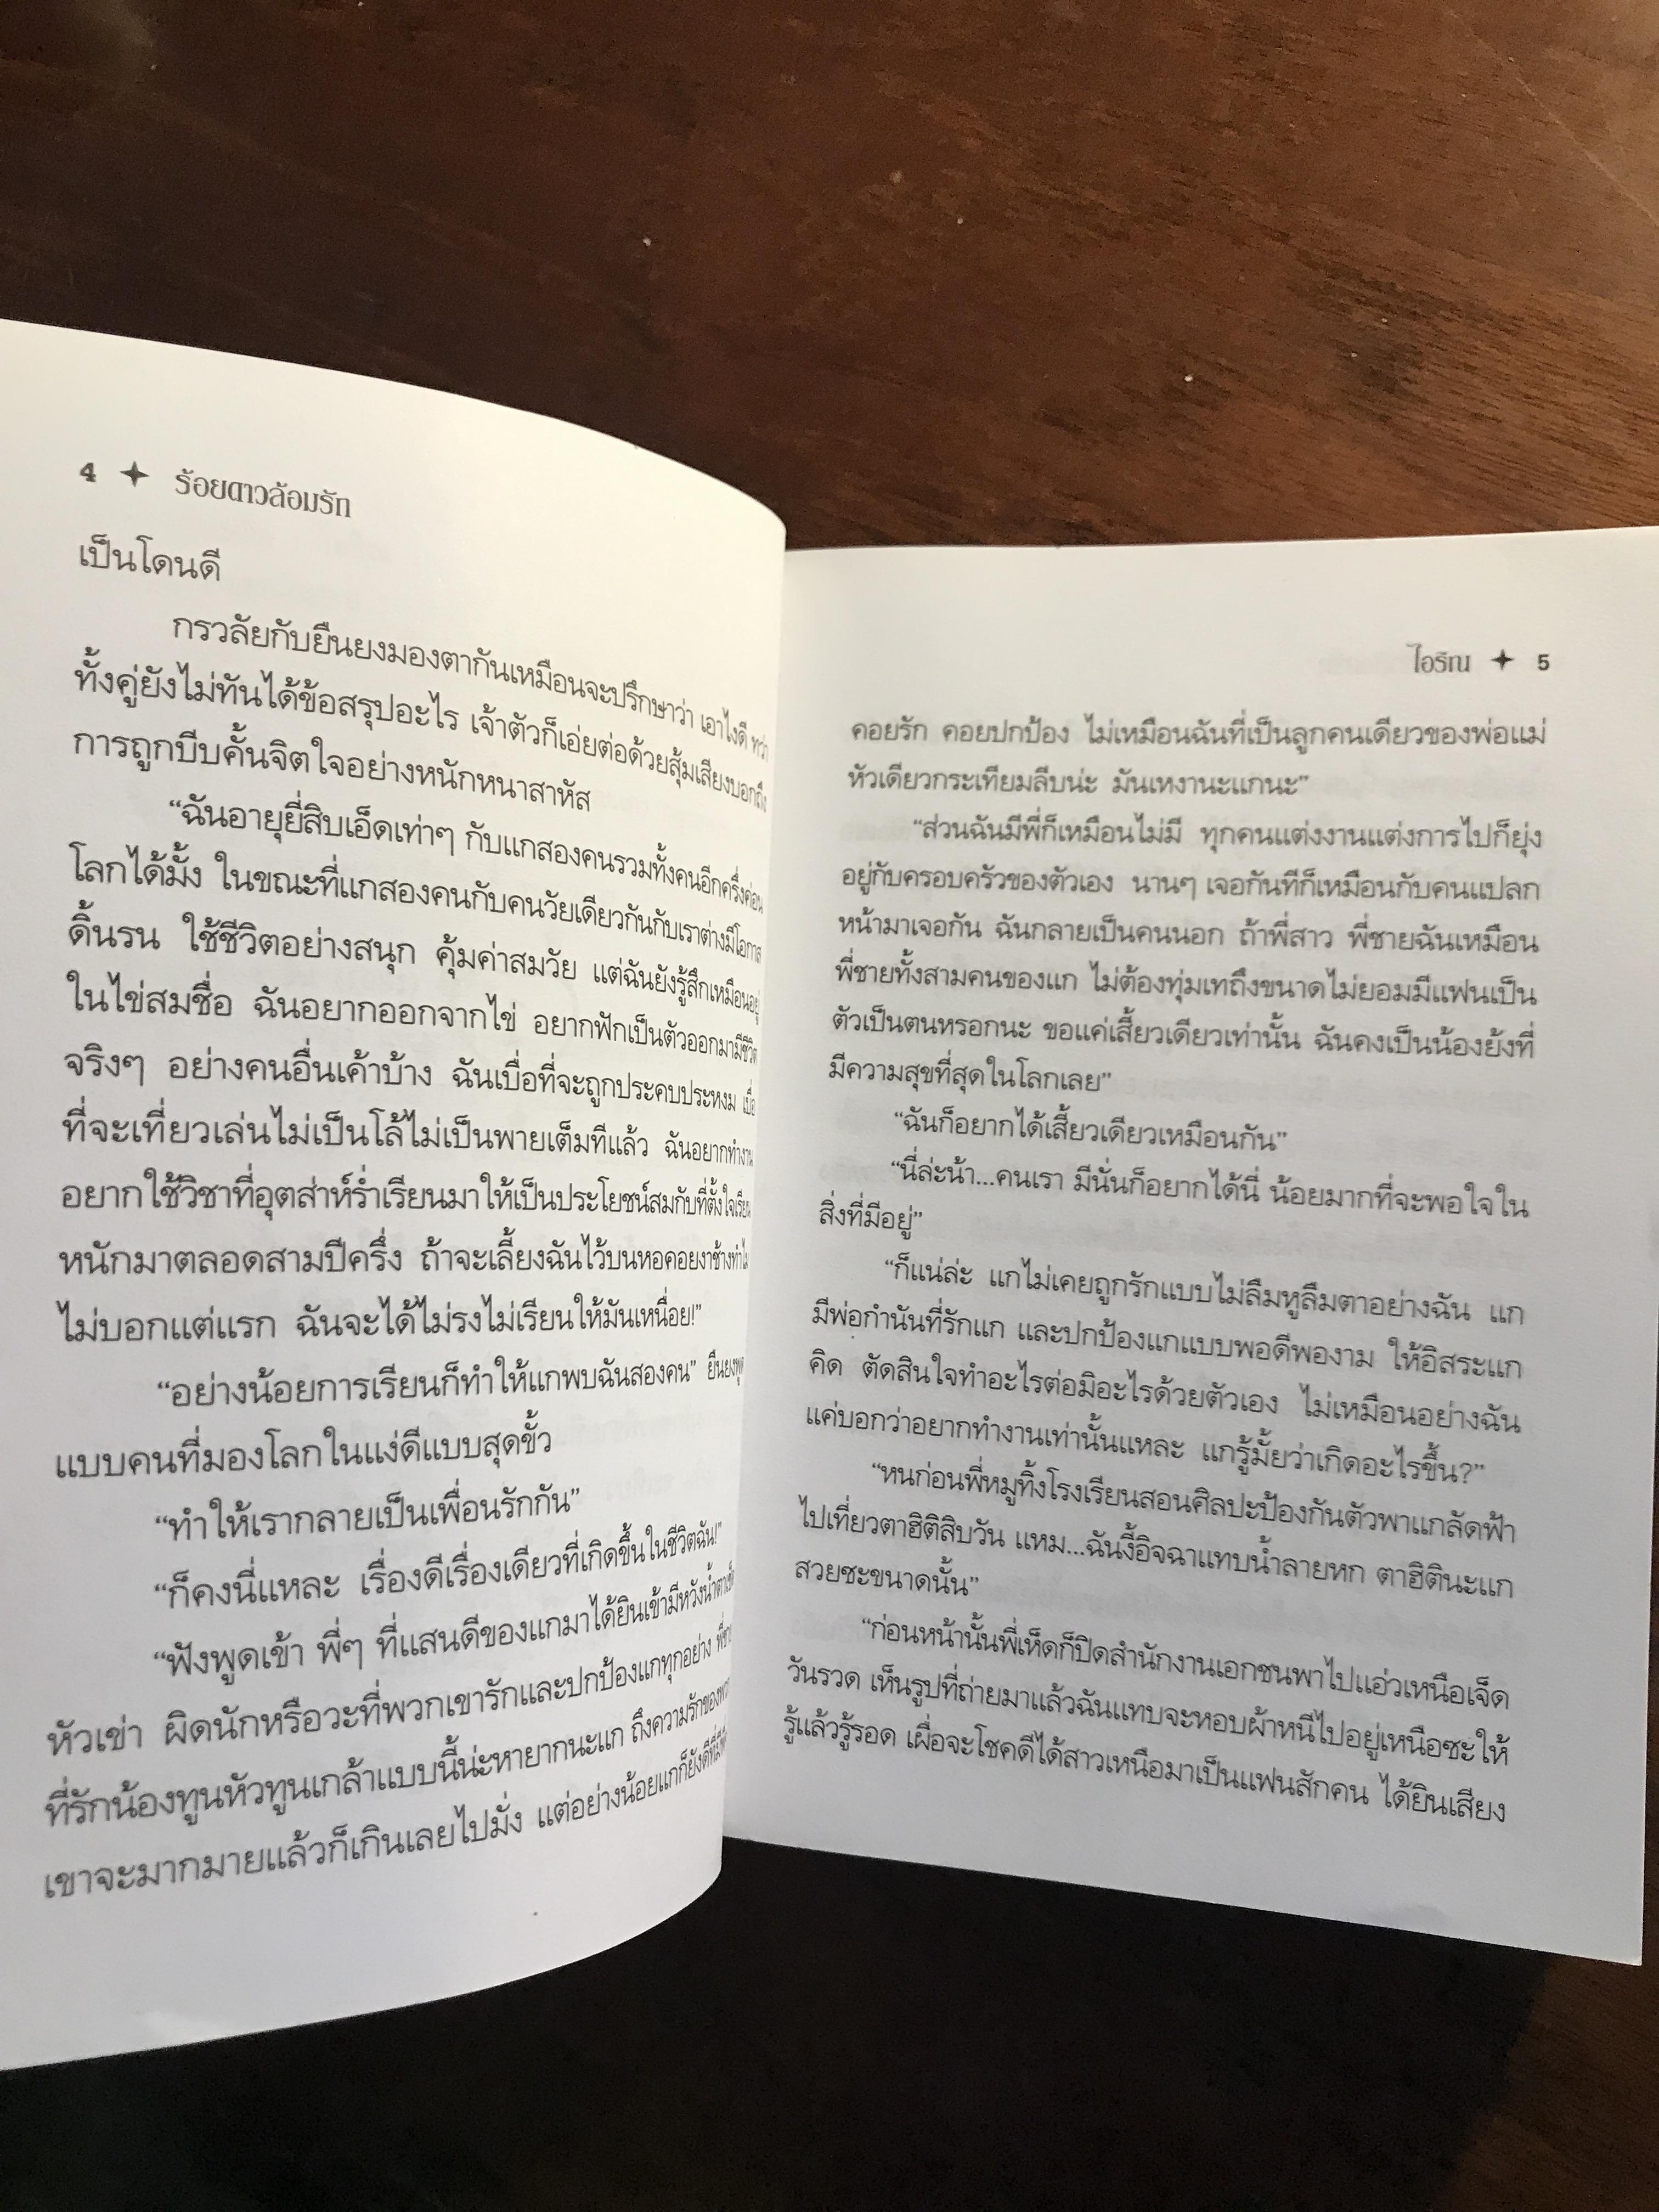 4 ✦ ร้อยดาวล้อมรัก
เป็นโดนดี
กรวลัยกับยืนยงมองตากันเหมือนจะปรึกษาว่า เอาไงดี ทว่า
ทั้งคู่ยังไม่ทันได้ข้อสรุปอะไร เจ้าตัวก็เอ่ยต่อด้วยสุ้มเสียงบอกถึง
การถูกบีบคั้นจิตใจอย่างหนักหนาสาหัส
“ฉันอายุยี่สิบเอ็ดเท่าๆ กับแกสองคนรวมทั้งคนอีกครึ่งค่อน
โลกได้มั้ง ในขณะที่แกสองคนกับคนวัยเดียวกันกับเราต่างมีโอกาส
ดิ้นรน ใช้ชีวิตอย่างสนุก คุ้มค่าสมวัย แต่ฉันยังรู้สึกเหมือนอยู่
ในไข่สมชื่อ ฉันอยากออกจากไข่ อยากฟักเป็นตัวออกมามีชีวิต
จริงๆ อย่างคนอื่นเค้าบ้าง ฉันเบื่อที่จะถูกประคบประหงม เบื่อ
ที่จะเที่ยวเล่นไม่เป็นโล้ไม่เป็นพายเต็มทีแล้ว ฉันอยากทำงาน
อยากใช้วิชาที่อุตส่าห์ร่ำเรียนมาให้เป็นประโยชน์สมกับที่ตั้งใจเรียน
หนักมาตลอดสามปีครึ่ง ถ้าจะเลี้ยงฉันไว้บนหอคอยงาช้างทำไม
ไม่บอกแต่แรก ฉันจะได้ไม่รงไม่เรียนให้มันเหนื่อย!”
“อย่างน้อยการเรียนก็ทำให้แกพบฉันสองคน” ยืนยงพูด
แบบคนที่มองโลกในแง่ดีแบบสุดขั้ว
“ทำให้เรากลายเป็นเพื่อนรักกัน”
“ก็คงนี่แหละ เรื่องดีเรื่องเดียวที่เกิดขึ้นในชีวิตฉัน!”
“ฟังพูดเข้า พี่ๆ ที่แสนดีของแกมาได้ยินเข้ามีหวังน้ำตาเช็ด
หัวเข่า ผิดนักหรือวะที่พวกเขารักและปกป้องแกทุกอย่าง พี่ชาย
ที่รักน้องทูนหัวทูนเกล้าแบบนี้น่ะหายากนะแก ถึงความรักของพวก
เขาจะมากมายแล้วก็เกินเลยไปมั่ง แต่อย่างน้อยแกก็ยังดีที่มี
ไอริณ ✦ 5
คอยรัก คอยปกป้อง ไม่เหมือนฉันที่เป็นลูกคนเดียวของพ่อแม่
หัวเดียวกระเทียมลีบน่ะ มันเหงานะแกนะ”
“ส่วนฉันมีพี่ก็เหมือนไม่มี ทุกคนแต่งงานแต่งการไปก็ยุ่ง
อยู่กับครอบครัวของตัวเอง นานๆ เจอกันทีก็เหมือนกับคนแปลก
หน้ามาเจอกัน ฉันกลายเป็นคนนอก ถ้าพี่สาว พี่ชายฉันเหมือน
พี่ชายทั้งสามคนของแก ไม่ต้องทุ่มเทถึงขนาดไม่ยอมมีแฟนเป็น
ตัวเป็นตนหรอกนะ ขอแค่เสี้ยวเดียวเท่านั้น ฉันคงเป็นน้องยั้งที่
มีความสุขที่สุดในโลกเลย”
“ฉันก็อยากได้เสี้ยวเดียวเหมือนกัน”
“นี่ล่ะน้า...คนเรา มีนั่นก็อยากได้นี่ น้อยมากที่จะพอใจใน
สิ่งที่มีอยู่”
“ก็แน่ล่ะ แกไม่เคยถูกรักแบบไม่ลืมหูลืมตาอย่างฉัน แก
มีพ่อกำนันที่รักแก และปกป้องแกแบบพอดีพองาม ให้อิสระแก
คิด ตัดสินใจทำอะไรต่อมิอะไรด้วยตัวเอง ไม่เหมือนอย่างฉัน
แค่บอกว่าอยากทำงานเท่านั้นแหละ แกรู้มั้ยว่าเกิดอะไรขึ้น?”
“หนก่อนพี่หมูทิ้งโรงเรียนสอนศิลปะป้องกันตัวพาแกลัดฟ้า
ไปเที่ยวตาฮิติสิบวัน แหม...ฉันงี้อิจฉาแทบน้ำลายหก ตาฮิตินะแก
สวยซะขนาดนั้น”
“ก่อนหน้านั้นพี่เห็ดก็ปิดสำนักงานเอกชนพาไปแอ่วเหนือเจ็ด
วันรวด เห็นรูปที่ถ่ายมาแล้วฉันแทบจะหอบผ้าหนีไปอยู่เหนือซะให้
รู้แล้วรู้รอด เผื่อจะโชคดีได้สาวเหนือมาเป็นแฟนสักคน ได้ยินเสียง